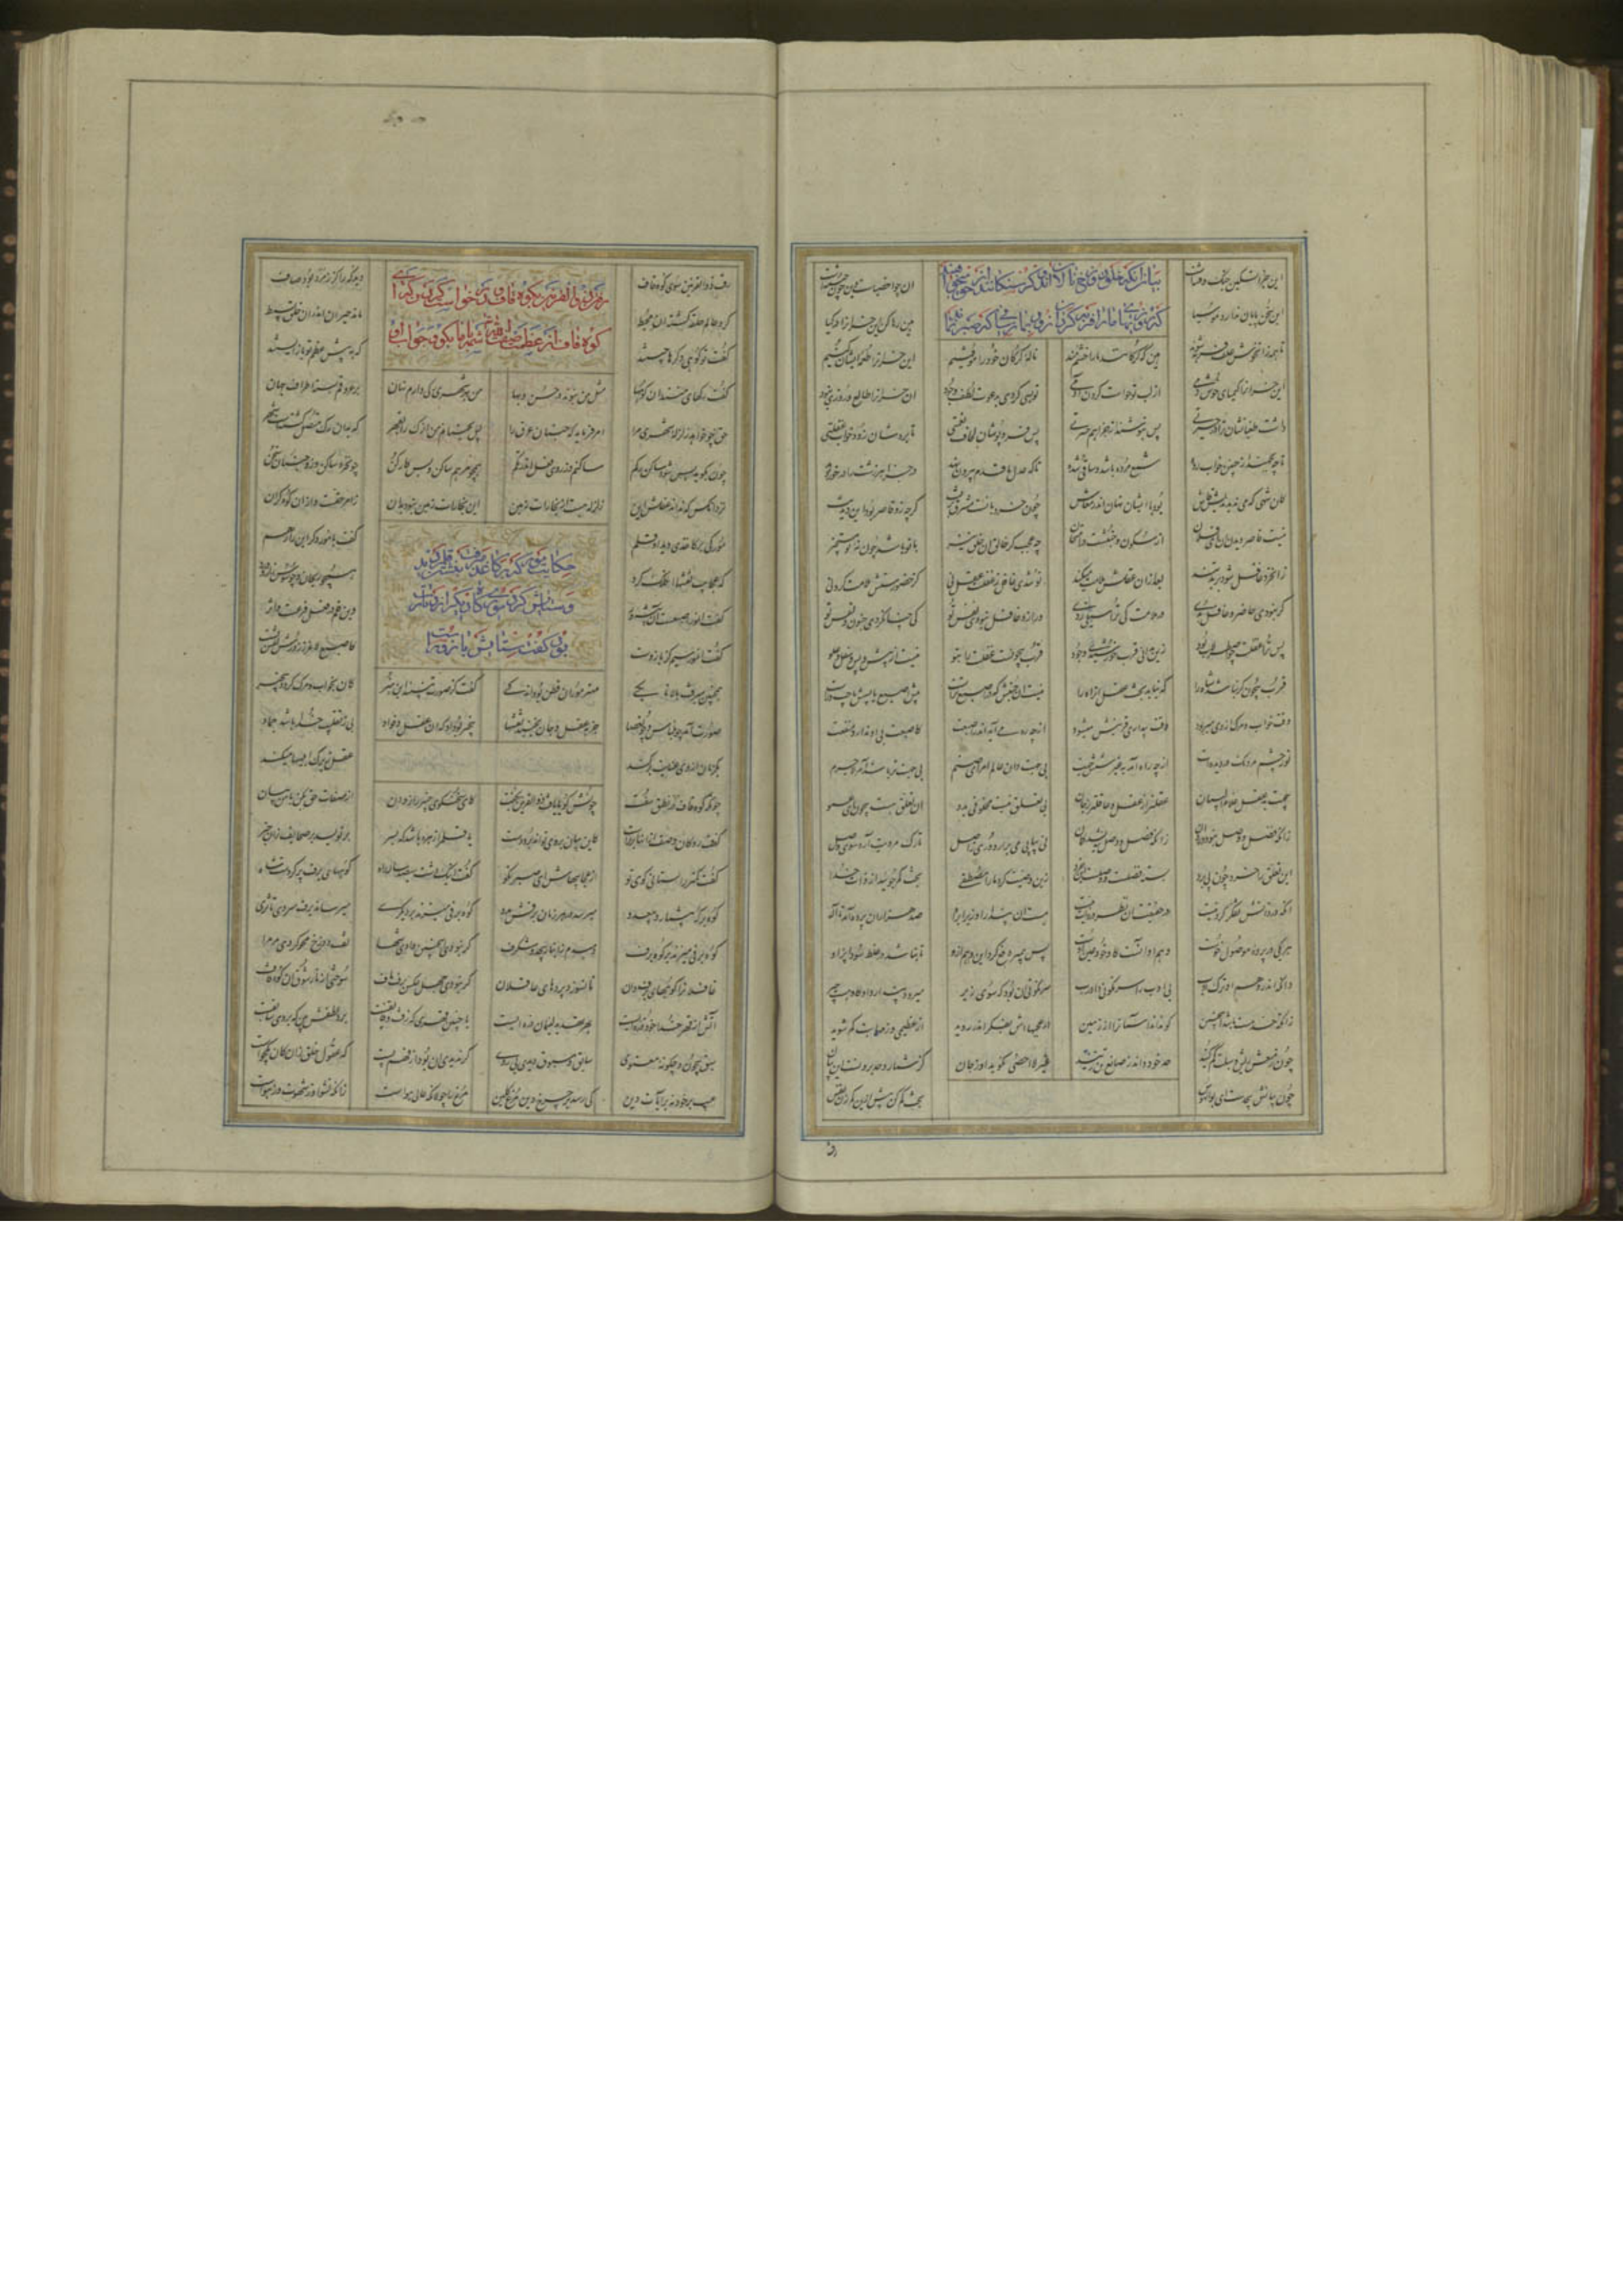 بیان آنکه خلق دوزخ گرسنگانند و نالانند از حق
که روزیهای ما را فربه گردان و زود بما رسان که صبر نماند
این سخن پایان ندارد موسیا
هین رها کن این خران را در گیا
تا همه زان خوش علف فربه شوند
هین که گرگانند ما را خشم‌مند
ناله گرگان خود را موقنیم
این خران را طعمه ایشان کنیم
این خران را کیمیای خوش دمی
از لب تو خواست کردن آدمی
تو بسی کردی بدعوت لطف و جود
آن خران را طالع و روزی نبود
داشت طغیانشان ترا در حیرتی
پس بنوشند از جزا هم حسرتی
پس فرو پوشان لحاف نعمتی
تا بردشان زود خواب غفلتی
تا چو بجهند از چنین خواب رده
شمع مرده باشد و ساقی شده
تا که عدل ما قدم بیرون نهد
در جزا هر زشت را درخور دهد
کان شهی که می ندیدندیش فاش
بود با ایشان نهان اندر معاش
چون خرد با تست مشرف بر تنت
گرچه زو قاصر بود این دیدنت
نیست قاصر دیدن او ای فلان
از سکون و جنبشت در امتحان
چه عجب گر خالق آن عقل نیز
با تو باشد چون نه تو مستجیز
از خرد غافل شود بر بد تند
بعد از آن عقلش ملامت میکند
تو شدی غافل ز عقلت عقل نی
کز حضورستش ملامت کردنی
گر نبودی حاضر و غافل بدی
در ملامت کی ترا سیلی زدی
ور ازو غافل نبودی نفس تو
کی چنان کردی جنون و تفس تو
پس تو و عقلت چو اصطرلاب بود
زین بدانی قرب خورشید وجود
قرب بیچونست عقلت را بتو
نیست از پیش و پس و سفل و علو
قرب بیچون چون نباشد شاه را
که نیابد بحث عقل آن راه را
نیست آن جنبش که در اصبع تراست
پیش اصبع یا پسش یا چپ و راست
وقت خواب و مرگ از وی میرود
وقت بیداری قرینش میشود
از چه ره می آید اندر اصبعت
کاصبعت بی او ندارد منفعت
نور چشم و مردمک در دیده‌ات
از چه راه آمد بغیر شش جهت
بی جهت دان عالم امر ای صنم
بی جهت تر باشد آمر لاجرم
بی جهت بد عقل علام البیان
عقل تر از عقل و جان تر هم ز جان
بی تعلق نیست مخلوقی بدو
آن تعلق هست بیچون ای عمو
زانکه فصل و وصل نبود در روان
نی پیاپی می بر ار دوری ز اصل
تا رگ مردیت آرد سوی وصل
این تعلق را خرد چون پی برد
بسته فصلست و وصلست این خرد
زین وصیت کرد ما را مصطفی
بحث کم جویید از ذات خدا
آنکه در ذاتش تفکر کردنیست
در حقیقت آن نظر در ذات نیست
هست آن پندار او زیرا براه
صد هزاران پرده آمد تا اله
هر یکی در پرده موصول خوست
وهم او آنست کان خود عین هوست
پس پیمبر دفع کرد این وهم ازو
تا نباشد در غلط سوداپز او
وانکه اندر وهم او ترک ادب
بی ادب را سرنگونی داد رب
سرنگونی آن بود که سوی زیر
میرود پندارد او کاو هست چیر
زانکه حد مست باشد این چنین
کو نداند آسمان را از زمین
در عجبهااش بفکر اندر روید
از عظیمی وز مهابت گم شوید
چون ز صنعش ریش و سبلت گم کند
حد خود داند ز صانع تن زند
غیر لا احصی نگوید او ز جان
کز شمار و حد برونست آن بیان
رفت
رفتن ذوالقرنین بکوه قاف و درخواست کردن که ای
کوه قاف از عظمت صفت حق شمه با ما بگو و جواب او
رفت ذوالقرنین سوی کوه قاف
دید که را کز زمرد بود صاف
گرد عالم حلقه گشته او محیط
ماند حیران اندر آن خلق بسیط
گفت تو کوهی دگرها چیستند
که به پیش عظم تو بازیستند
گفت رگهای منند آن کوهها
مثل من نبوند در حسن و بها
من بهر شهری رگی دارم نهان
بر عروقم بسته اطراف جهان
حق چو خواهد زلزله شهری مرا
امر فرماید که جنبان عرق را
پس بجنبانم من آن رگ را بقهر
که بدان رگ متصل گشتست شهر
چون بگوید بس شود ساکن رگم
ساکنم وز روی فعل اندر تگم
همچو مرهم ساکن و بس کارکن
چون خرد ساکن وزو جنبان سخن
نزد آنکس که نداند عقلش این
زلزله هست از بخارات زمین
این بخارات زمین نبود بدان
ز امر حقست و از آن کوه گران
حکایت موری که بر کاغد میرفت قلم دید
و ستایش کردن موری دیگر
مورکی بر کاغدی دید او قلم
گفت با مور دگر این راز هم
که عجایب نقشها آن کلک کرد
همچو ریحان و چو سوسن زار و ورد
گفت آن مور اصبعست آن پیشه‌ور
وین قلم در فعل فرعست و اثر
گفت آن مور سیم کز بازوست
کاصبع لاغر ز زورش نقش بست
همچنین میرفت بالا تا یکی
مهتر موران فطن بود اندکی
گفت کز صورت مبینید این هنر
کان بخواب و مرگ گردد بیخبر
صورت آمد چون لباس و چون عصا
جز بعقل و جان نجنبد نقشها
بیخبر بود او که آن عقل و فواد
بی ز تقلیب خدا باشد جماد
یک زمان از وی عنایت بر کند
عقل زیرک ابلهیها میکند
چونکه کوه قاف در نطق سفت
چونش گویا یافت ذوالقرنین گفت
کای سخن گوی خبیر رازدان
از صفات حق بکن با من بیان
گفت رو کان وصف از آن هایلترست
که بیان بر وی تواند برد دست
یا قلم را زهره باشد که بسر
بر نویسد بر صحایف زان خبر
گفت کمتر داستانی گوی تو
از عجبهاش ای حبر نکو
گفت اینک دشت سیصد ساله راه
کوههای برف پر کردست شاه
کوه بر که بیشمار و بیعدد
میرسد در هر زمان برفش مدد
کوه برفی میزند بر دیگری
میرساند برف سردی تا ثری
کوه برفی میزند بر کوه برف
دم بدم ز انبار بیحد و شگرف
گر نبودی این چنین وادی شها
تف دوزخ محو کردی مر مرا
غافلان را کوههای برف دان
تا نسوزد پرده‌های عاقلان
گر نبودی عکس جهل برف باف
سوختی از نار شوق آن کوه قاف
آتش از قهر خدا خود ذره‌ایست
بهر تهدید لئیمان دره‌ایست
با چنین قهری که زفت و فایقست
برد لطفش بین که بر وی سابقست
سبق بیچون و چگونه معنوی
سابق و مسبوق دیدی بی دوی
گر ندیدی آن بود از فهم پست
که عقول خلق زان کان یک جوست
عیب بر خود نه نه بر آیات دین
کی رسد بر چرخ دین مرغ گلین
مرغ را جولانگه عالی هواست
زانکه نشو او ز شهوت وز هواست